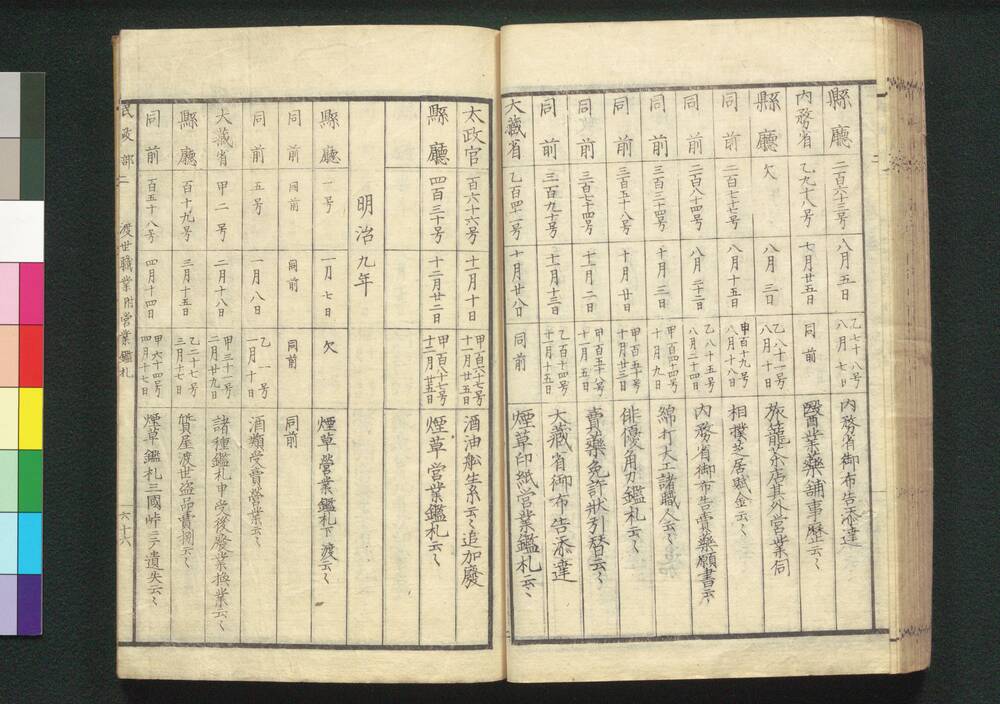 縣廳 二百六十三号 八月五日 乙七十八号 八月七日 内務省御布告添達
内務省 乙九十八号 七月廿五日 同前 醫業藥舗事歴云〻
縣廳 欠 八月三日 乙八十一号 八月十日 旅籠茶店其外営業伺
同前 二百七十七号 八月十五日 甲百十九号 八月十八日 相撲芝居賦金云〻
同前 二百八十四号 八月二十二日 乙八十五号 八月二十四日 内務省御布告賣藥願書云〻
同前 三百三十四号 十月三日 甲百四十四号 十月九日 綿打大工諸職人云〻
同前 三百五十八号 十月廿日 甲百五十号 十月廿三日 俳優角力鑑札云〻
同前 三百七十四号 十一月二日 甲百五十八号 十一月五日 賣藥免許状引替云〻
同前 三百九十号 十一月十三日 乙百十四号 十一月十五日 大藏省御布告添達
大藏省 乙百四十一号 十月廿八日 同前 煙草印紙営業鑑札云〻
太政官 百六十六号 十一月十日 甲百六十七号 十一月廿五日 酒油舩生糸云〻追加廢
縣廳 四百三十号 十二月廿二日 甲百八十七号 十二月廿五日 煙草営業鑑札云〻
明治九年
縣廳 一号 一月七日 欠 煙草營業鑑札下渡云〻
同前 同前 同前 同前 同前
同前 五号 一月八日 乙一号 一月十日 酒類受賣營業云〻
大藏省 甲二号 二月十八日 甲三十一号 二月廿九日 諸種鑑札申受後廢業換業云〻
縣廳 百十九号 三月十五日 乙二十七号 三月十七日 質屋渡世盗品賣捌云〻
同前 百五十八号 四月十四日 甲六十四号 四月十七日 煙草鑑札三國峠ニテ遺失云〻
民政部二 渡世職業附営業鑑札 六十六